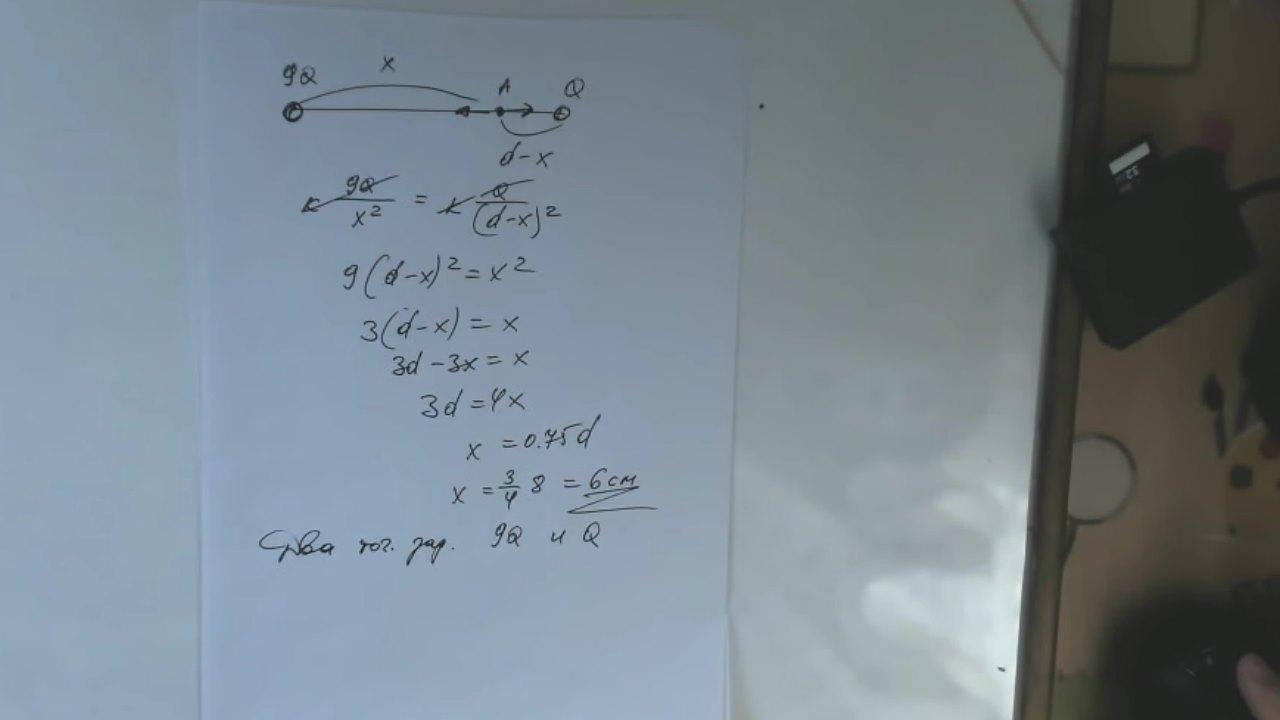 9Q x A Q
d-x
k 9Q/x² = k Q/(d-x)²
9(d-x)² = x²
3(d-x) = x
3d - 3x = x
3d = 4x
x = 0.75d
x = 3/4 8 = 6 см
Два точ. зар. 9Q и Q